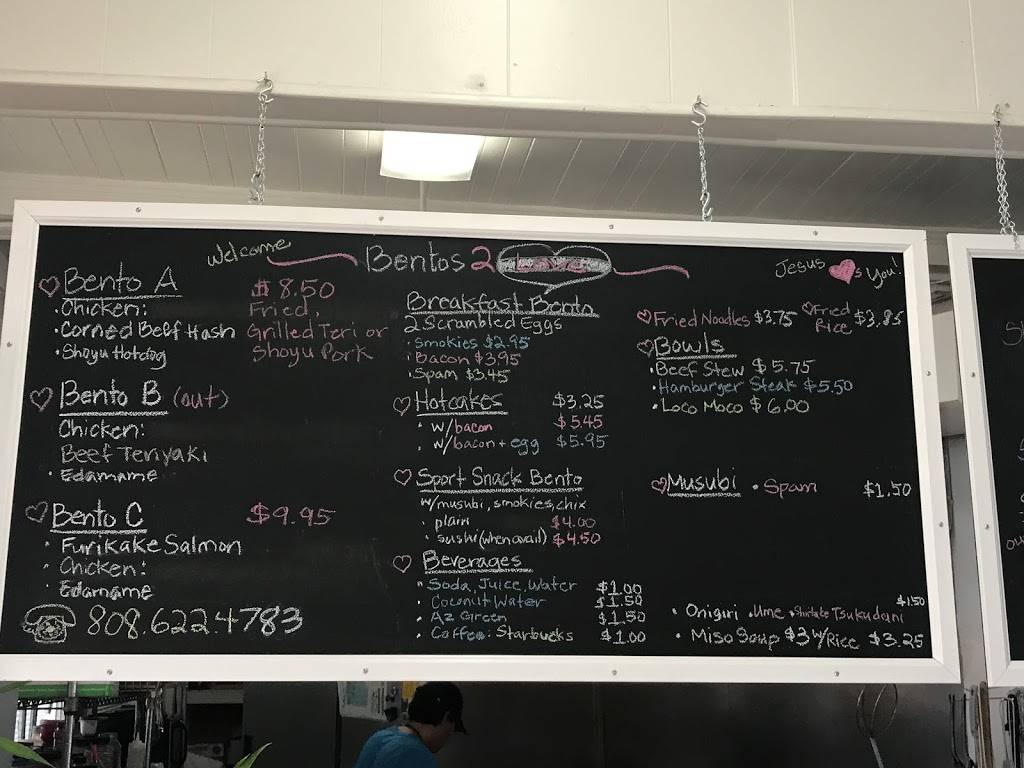 Welcome
Bentos 2 Love
Jesus s You!
Bento A $8.50
• Chicken: Fried,
• Corned Beef Hash Grilled Teri or
• Shoyu Hotdog Shoyu Pork
Bento B (out)
Chicken:
Beef Teriyaki
• Edamame
Bento C $9.95
• Furikake Salmon
• Chicken:
• Edamame
808.622.4783
Breakfast Bento
2 Scrambled Eggs
• Smokies $2.95
• Bacon $3.95
• Spam $3.45
Hotcakes $3.25
• w/bacon $5.45
• w/bacon + egg $5.95
Sport Snack Bento
w/musubi, smokies, chix
• plain $4.00
• sushi (when avail) $4.50
Beverages
• Soda, Juice, Water $1.00
• Coconut Water $1.50
• Az Green $1.50
• Coffee: Starbucks $1.00
Fried Noodles $3.75
Fried Rice $3.85
Bowls
• Beef Stew $5.75
• Hamburger Steak $5.50
• Loco Moco $6.00
Musubi • Spam $1.50
• Onigiri • Ume • Shiitake Tsukudani $1.50
• Miso Soup $3 w/Rice $3.25